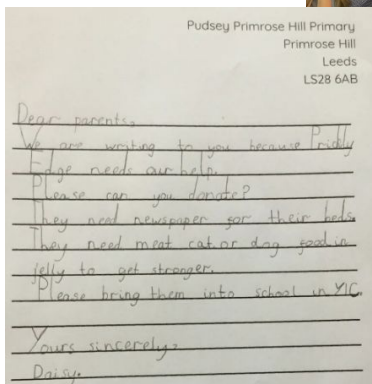 Pudsey Primrose Hill Primary
Primrose Hill
Leeds
LS28 6AB
Dear parents,
We are writing to you because Prickly
Edge needs our help.
Please can you donate?
They need newspaper for their beds.
They need meat cat or dog food in
jelly to get stronger.
Please bring them into school in Y1C.
Yours sincerely,
Daisy.